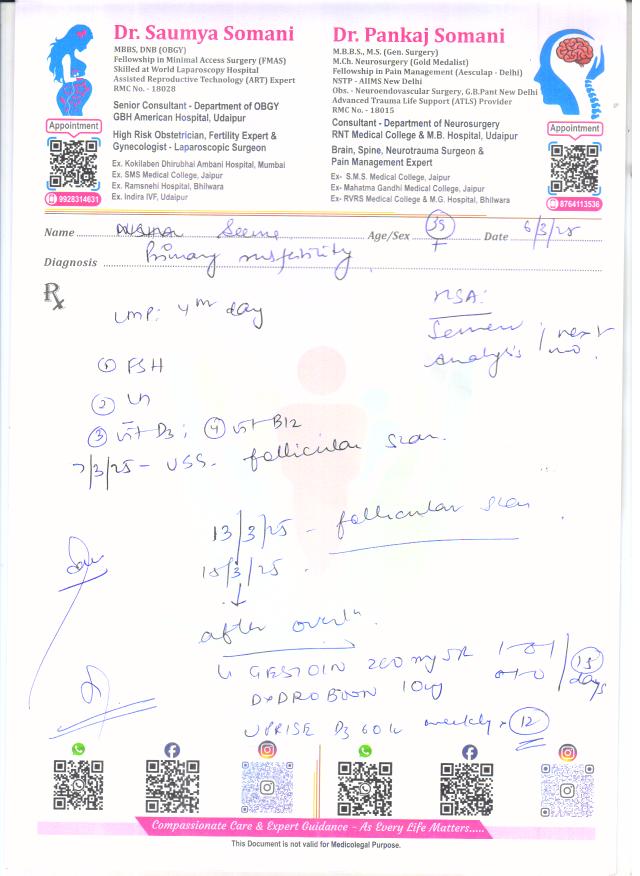 Dr. Saumya Somani
MBBS, DNB (OBGY)
Fellowship in Minimal Access Surgery (FMAS)
Skilled at World Laparoscopy Hospital
Assisted Reproductive Technology (ART) Expert
RMC No. - 18028
Senior Consultant - Department of OBGY
GBH American Hospital, Udaipur
High Risk Obstetrician, Fertility Expert &
Gynecologist - Laparoscopic Surgeon
Ex. Kokilaben Dhirubhai Ambani Hospital, Mumbai
Ex. SMS Medical College, Jaipur
Ex. Ramsnehi Hospital, Bhilwara
Ex. Indira IVF, Udaipur
Appointment
9928314631
Dr. Pankaj Somani
M.B.B.S., M.S. (Gen. Surgery)
M.Ch. Neurosurgery (Gold Medalist)
Fellowship in Pain Management (Aesculap - Delhi)
NSTP - AIIMS New Delhi
Obs. - Neuroendovascular Surgery, G.B.Pant New Delhi
Advanced Trauma Life Support (ATLS) Provider
RMC No. - 18015
Consultant - Department of Neurosurgery
RNT Medical College & M.B. Hospital, Udaipur
Brain, Spine, Neurotrauma Surgeon &
Pain Management Expert
Ex- S.M.S. Medical College, Jaipur
Ex- Mahatma Gandhi Medical College, Jaipur
Ex- RVRS Medical College & M.G. Hospital, Bhilwara
Appointment
8764113536
Name Seema Age/Sex 35 F Date 6/3/25
Diagnosis Primary infertility
Rx
LMP: 4th day
HSA:
Semen
Analysis / next
① FSH
② LH
③ vit D3; ④ vit B12
7/3/25 - USS. follicular scan.
13/3/25 - follicular scan
15/3/25.
↓
after ovuln
GESTOIN 200 mg SR 1-0-1
DYDROBOON 10mg 0-1-0 15 days
UPRISE D3 60k weekly x 12
Compassionate Care & Expert Guidance - As Every Life Matters.....
This Document is not valid for Medicolegal Purpose.